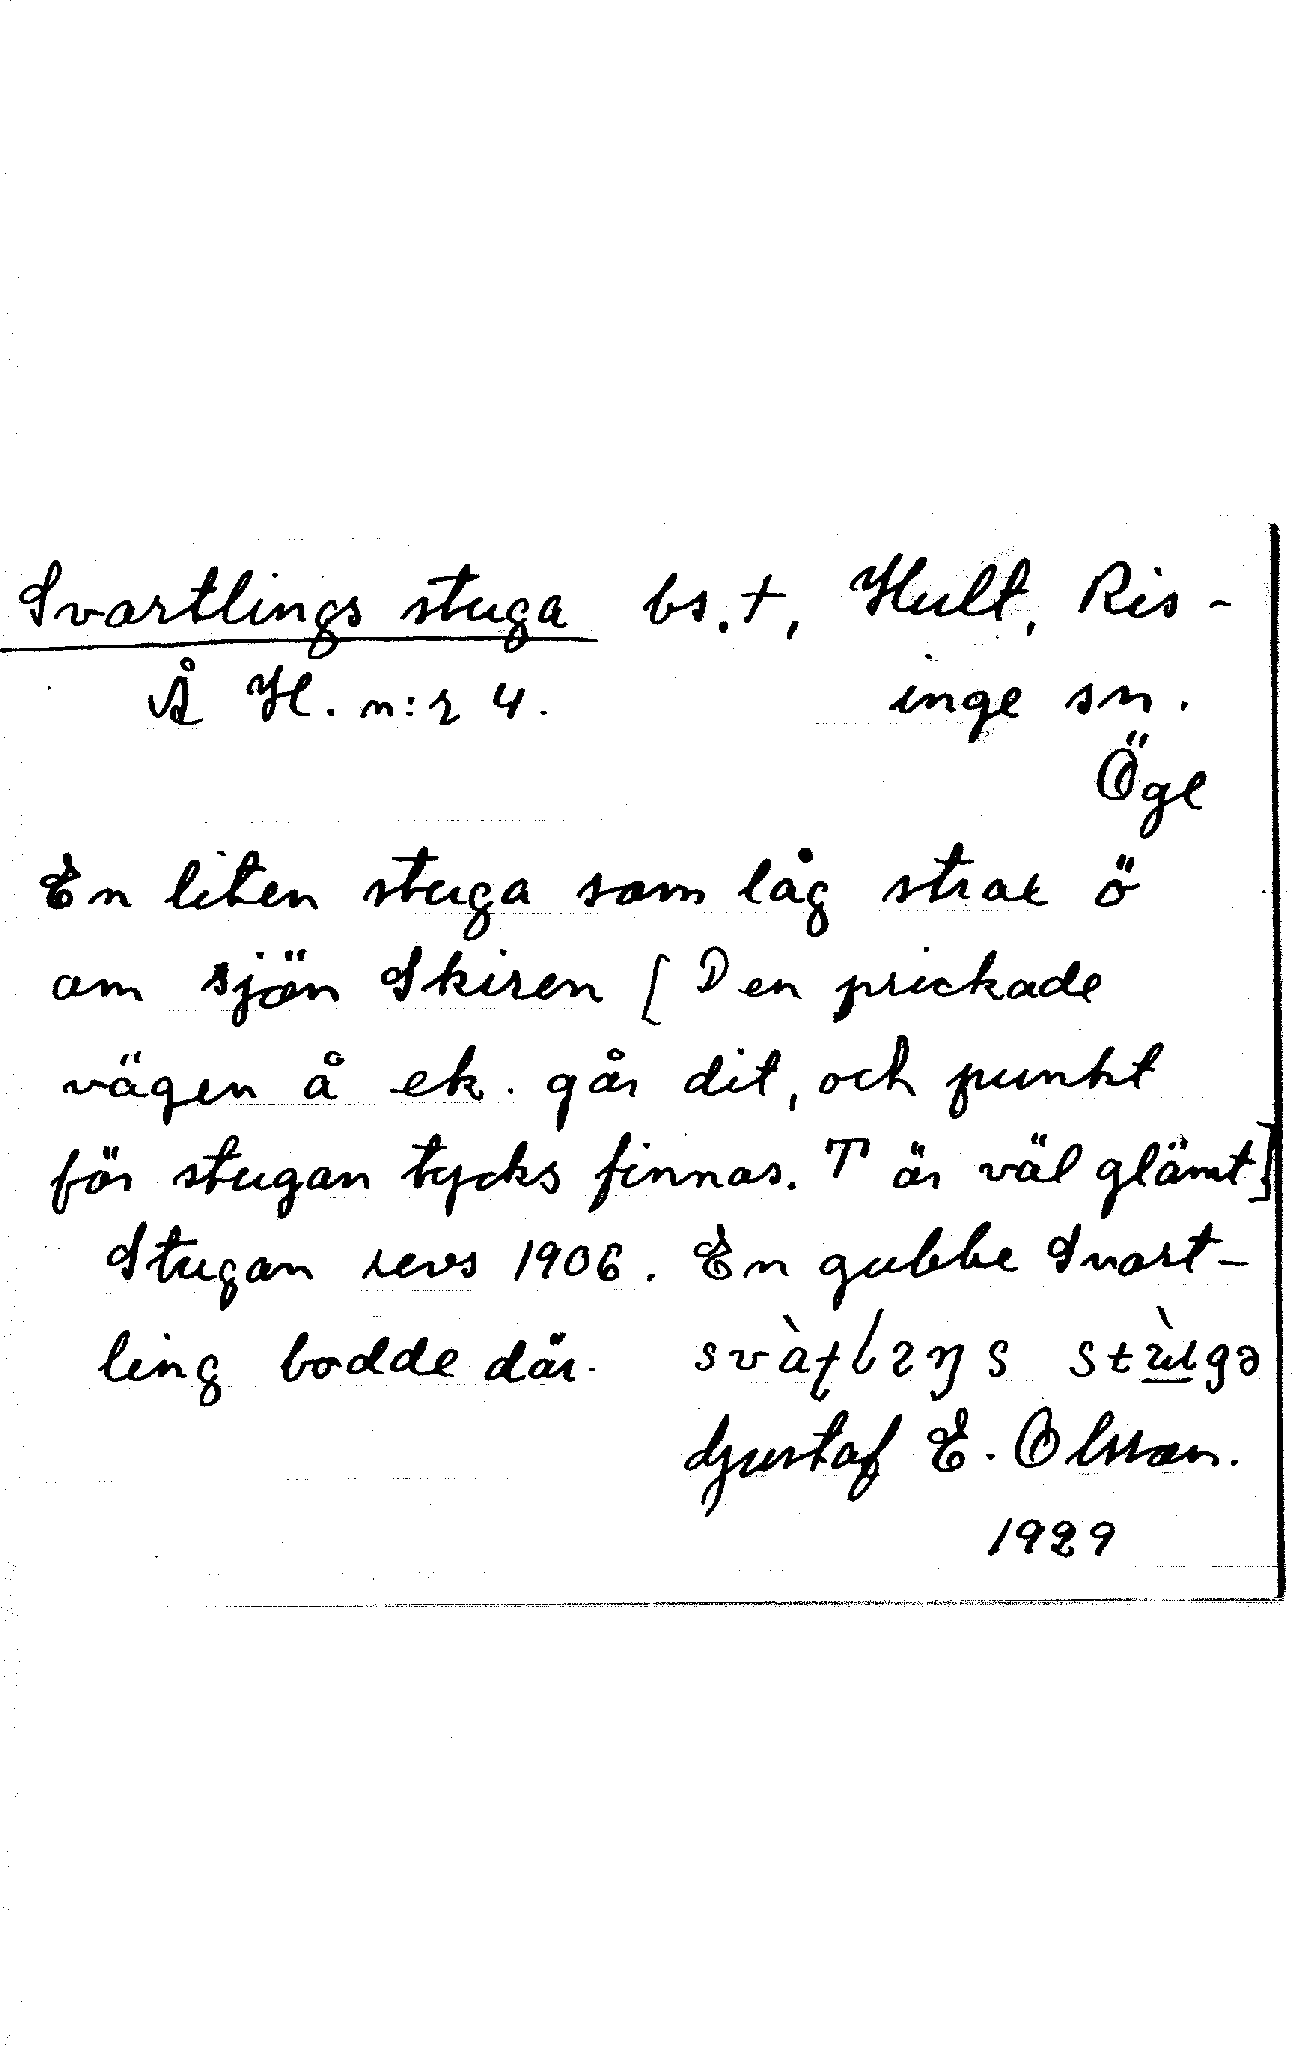 Svartlings stuga bs. †, Hult, Ris-
Å H. n:r 4. inge sn.
Ögl
En liten stuga som låg strax ö
om sjön Skiren [Den prickade
vägen å ek. går dit, och punkt
för stugan tycks finnas. T är väl glömt]
Stugan revs 1906. En gubbe Svart-
ling bodde där.
Gustaf E. Olsson.
1929